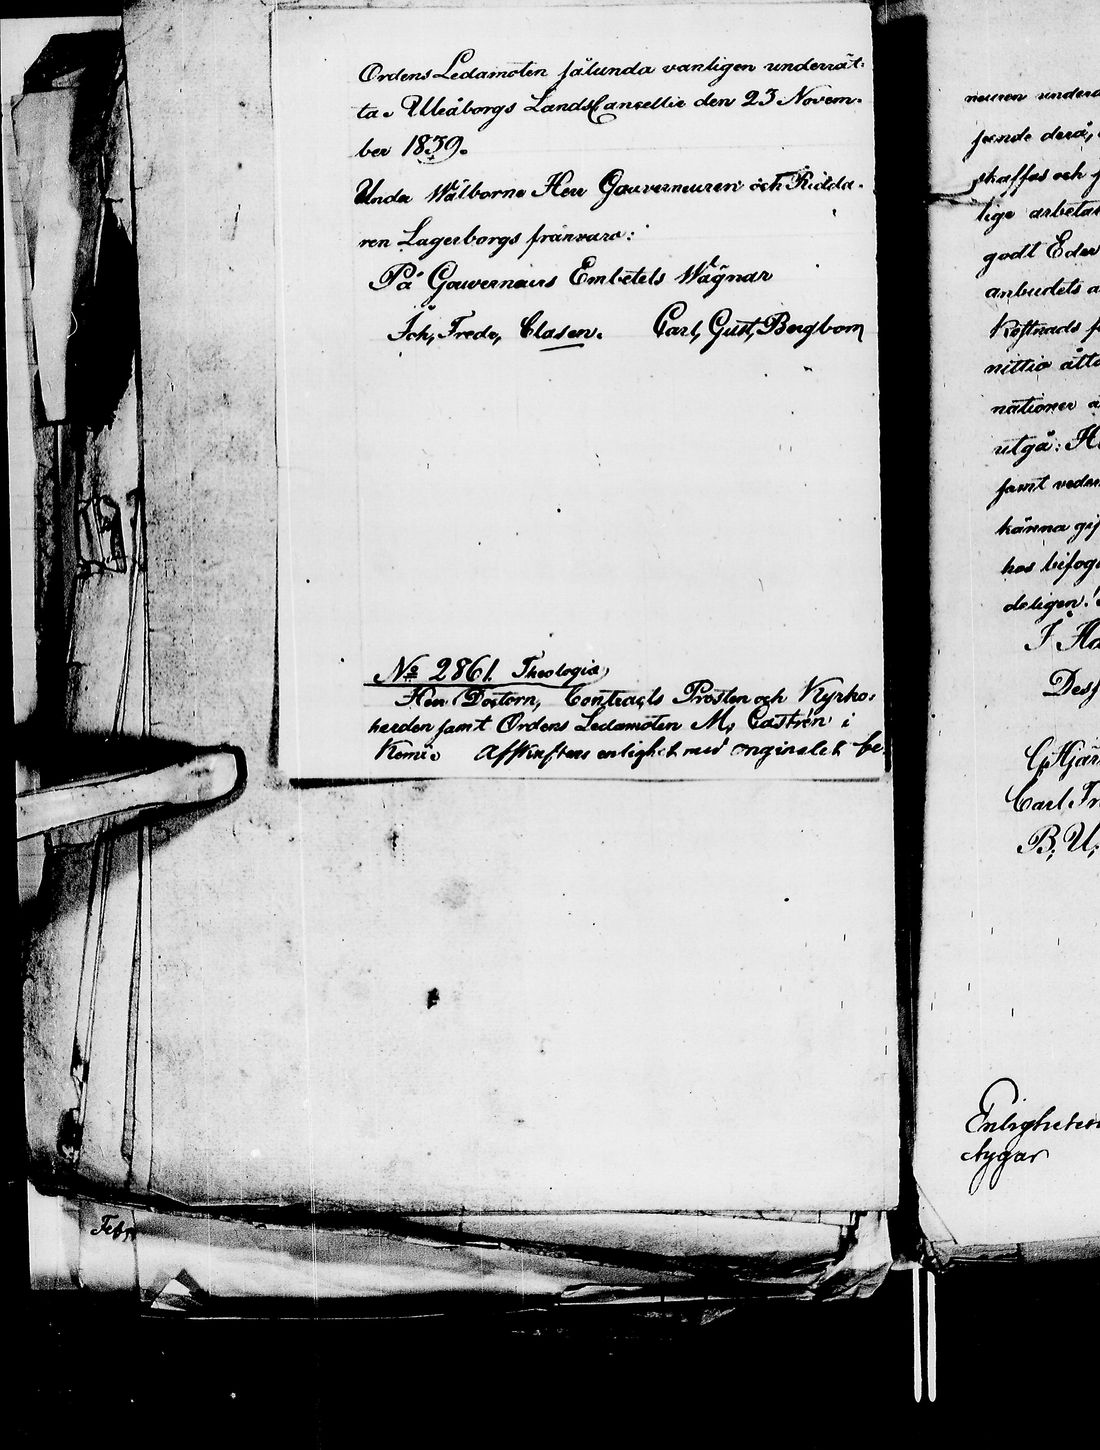 Ordens Ledamoten sålunda vanligen underrät-
ta. Uleåborgs Lands Cancellie den 23 Novem-
ber 1839.
Unde Wälborne Herr Gouverneuren och Ridda-
ren Lagerborgs frånvaro:
På Gouverneurs Embetets Wägnar
Joh, Fredr, Clasen. Carl, Gust, Bergbom
No 2861. Theologiæ
Herr Doctorn, Contracts Prosten och Kyrko-
herden samt Ordens Ledamoten M, Castrén i
Kemi. Afskriftens enlighet med originalet be-
Febr
neuren
skaffas och
lige
godt Eder
anbudets
Kostnads
nittio
nationer
utgå: 
samt
känna
hos
deligen!
Carl
B, U,
Enligheten
tygar